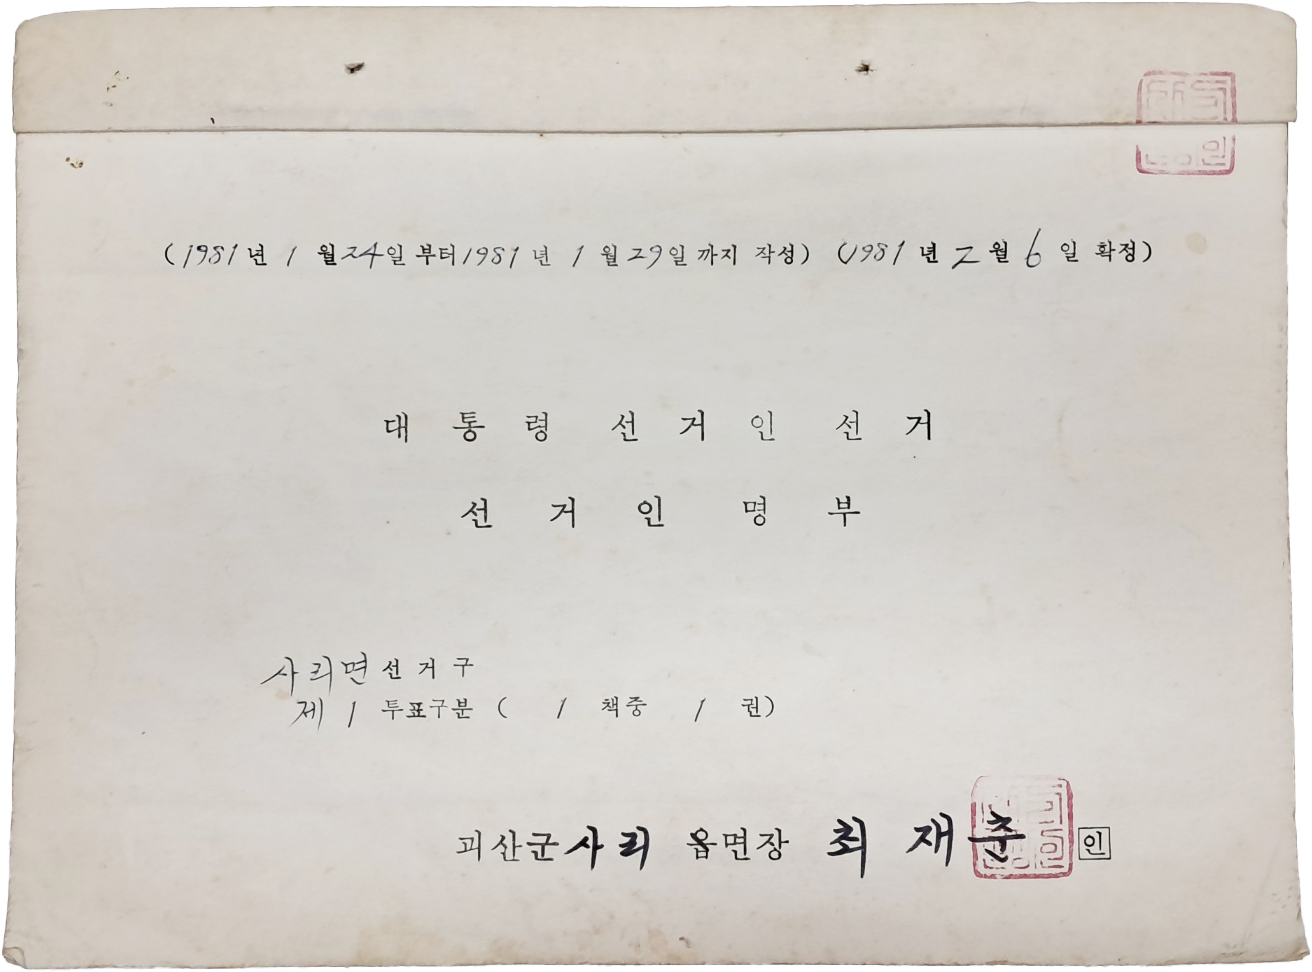 (1981년 1월 24일 부터 1981년 1월 29일 까지 작성) (1981년 2월 6일 확정)
대통령 선거인 선거
선거인 명부
사리면 선거구
제 1 투표구분 ( 1 책중 1 권)
괴산군 사리 읍면장 최재춘 인